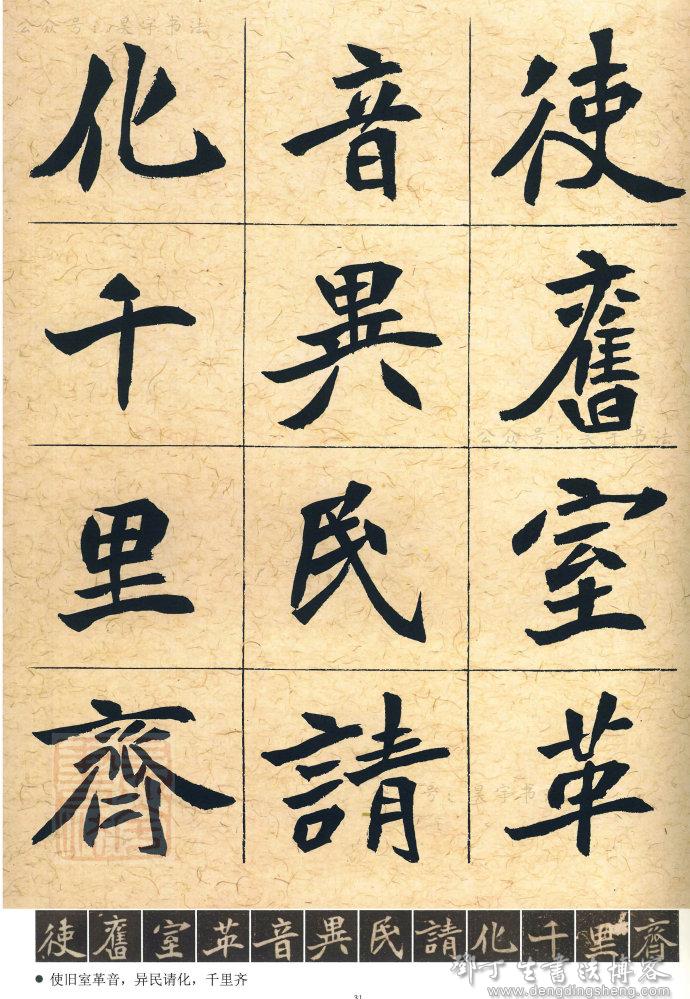 公众号:昊宇书法
使舊室革
音異民請
化千里齊
使舊室革音異民請化千里齊
● 使旧室革音，异民请化，千里齐
邓丁生书法博客
www.dengdingsheng.com
31